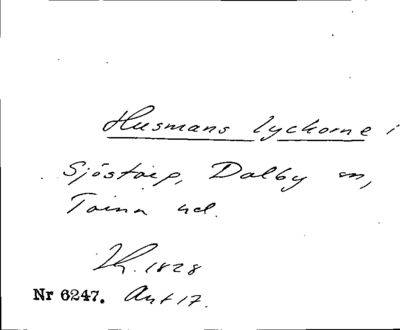 Husmans lyckorne i
Sjöstorp, Dalby sn,
Torna hd.
Lh. 1828
Nr 6247. Akt 17.